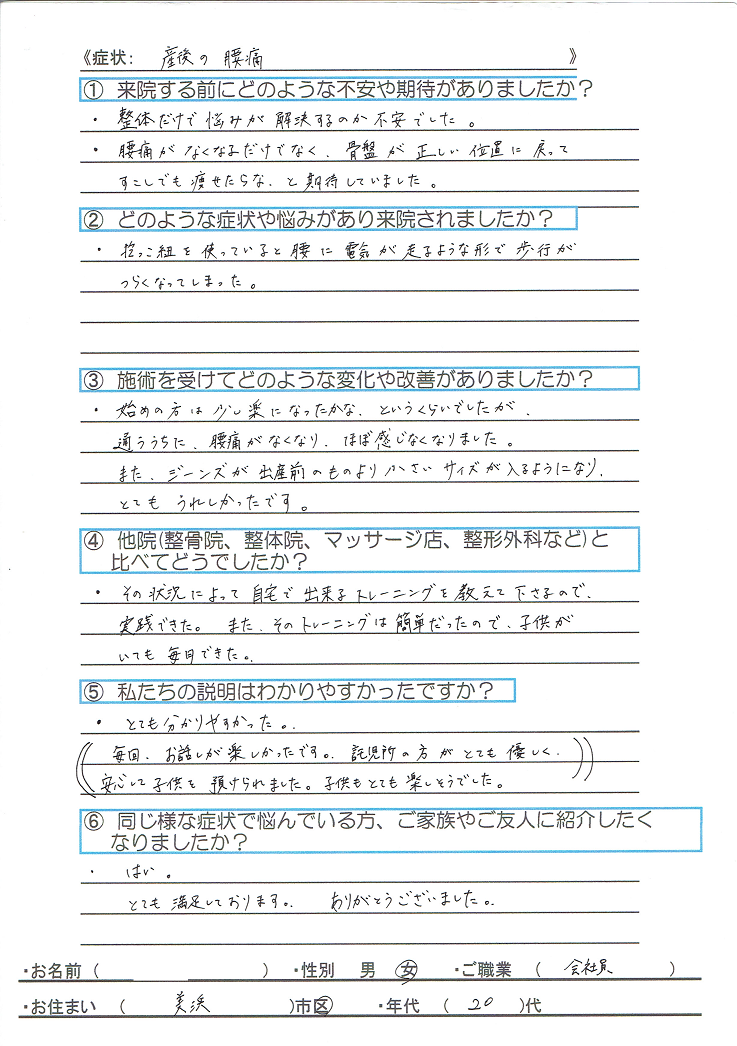 《症状: 産後の腰痛 》
① 来院する前にどのような不安や期待がありましたか？
・ 整体だけで悩みが解決するのか不安でした。
・ 腰痛がなくなるだけでなく、骨盤が正しい位置に戻って
すこしでも痩せたらな、と期待していました。
② どのような症状や悩みがあり来院されましたか？
・ 抱っこ紐を使っていると腰に電気が走るような形で歩行が
つらくなってしまった。
③ 施術を受けてどのような変化や改善がありましたか？
・ 始めの方は少し楽になったかな、というくらいでしたが、
通ううちに、腰痛がなくなり、ほぼ感じなくなりました。
また、ジーンズが出産前のものより小さいサイズが入るようになり、
とてもうれしかったです。
④ 他院(整骨院、整体院、マッサージ店、整形外科など)と
比べてどうでしたか？
・ その状況によって自宅で出来るトレーニングを教えて下さるので、
実践できた。また、そのトレーニングは簡単だったので、子供が
いても毎日できた。
⑤ 私たちの説明はわかりやすかったですか？
・ とても分かりやすかった。
((毎回、お話しが楽しかったです。託児所の方がとても優しく、
安心して子供を預けられました。子供もとても楽しそうでした。))
⑥ 同じ様な症状で悩んでいる方、ご家族やご友人に紹介したく
なりましたか？
・ はい。
とても満足しております。 ありがとうございました。
・お名前 ( ) ・性別 男 女 ・ご職業 ( 会社員 )
・お住まい ( 美浜 )市区 ・年代 ( 20 )代